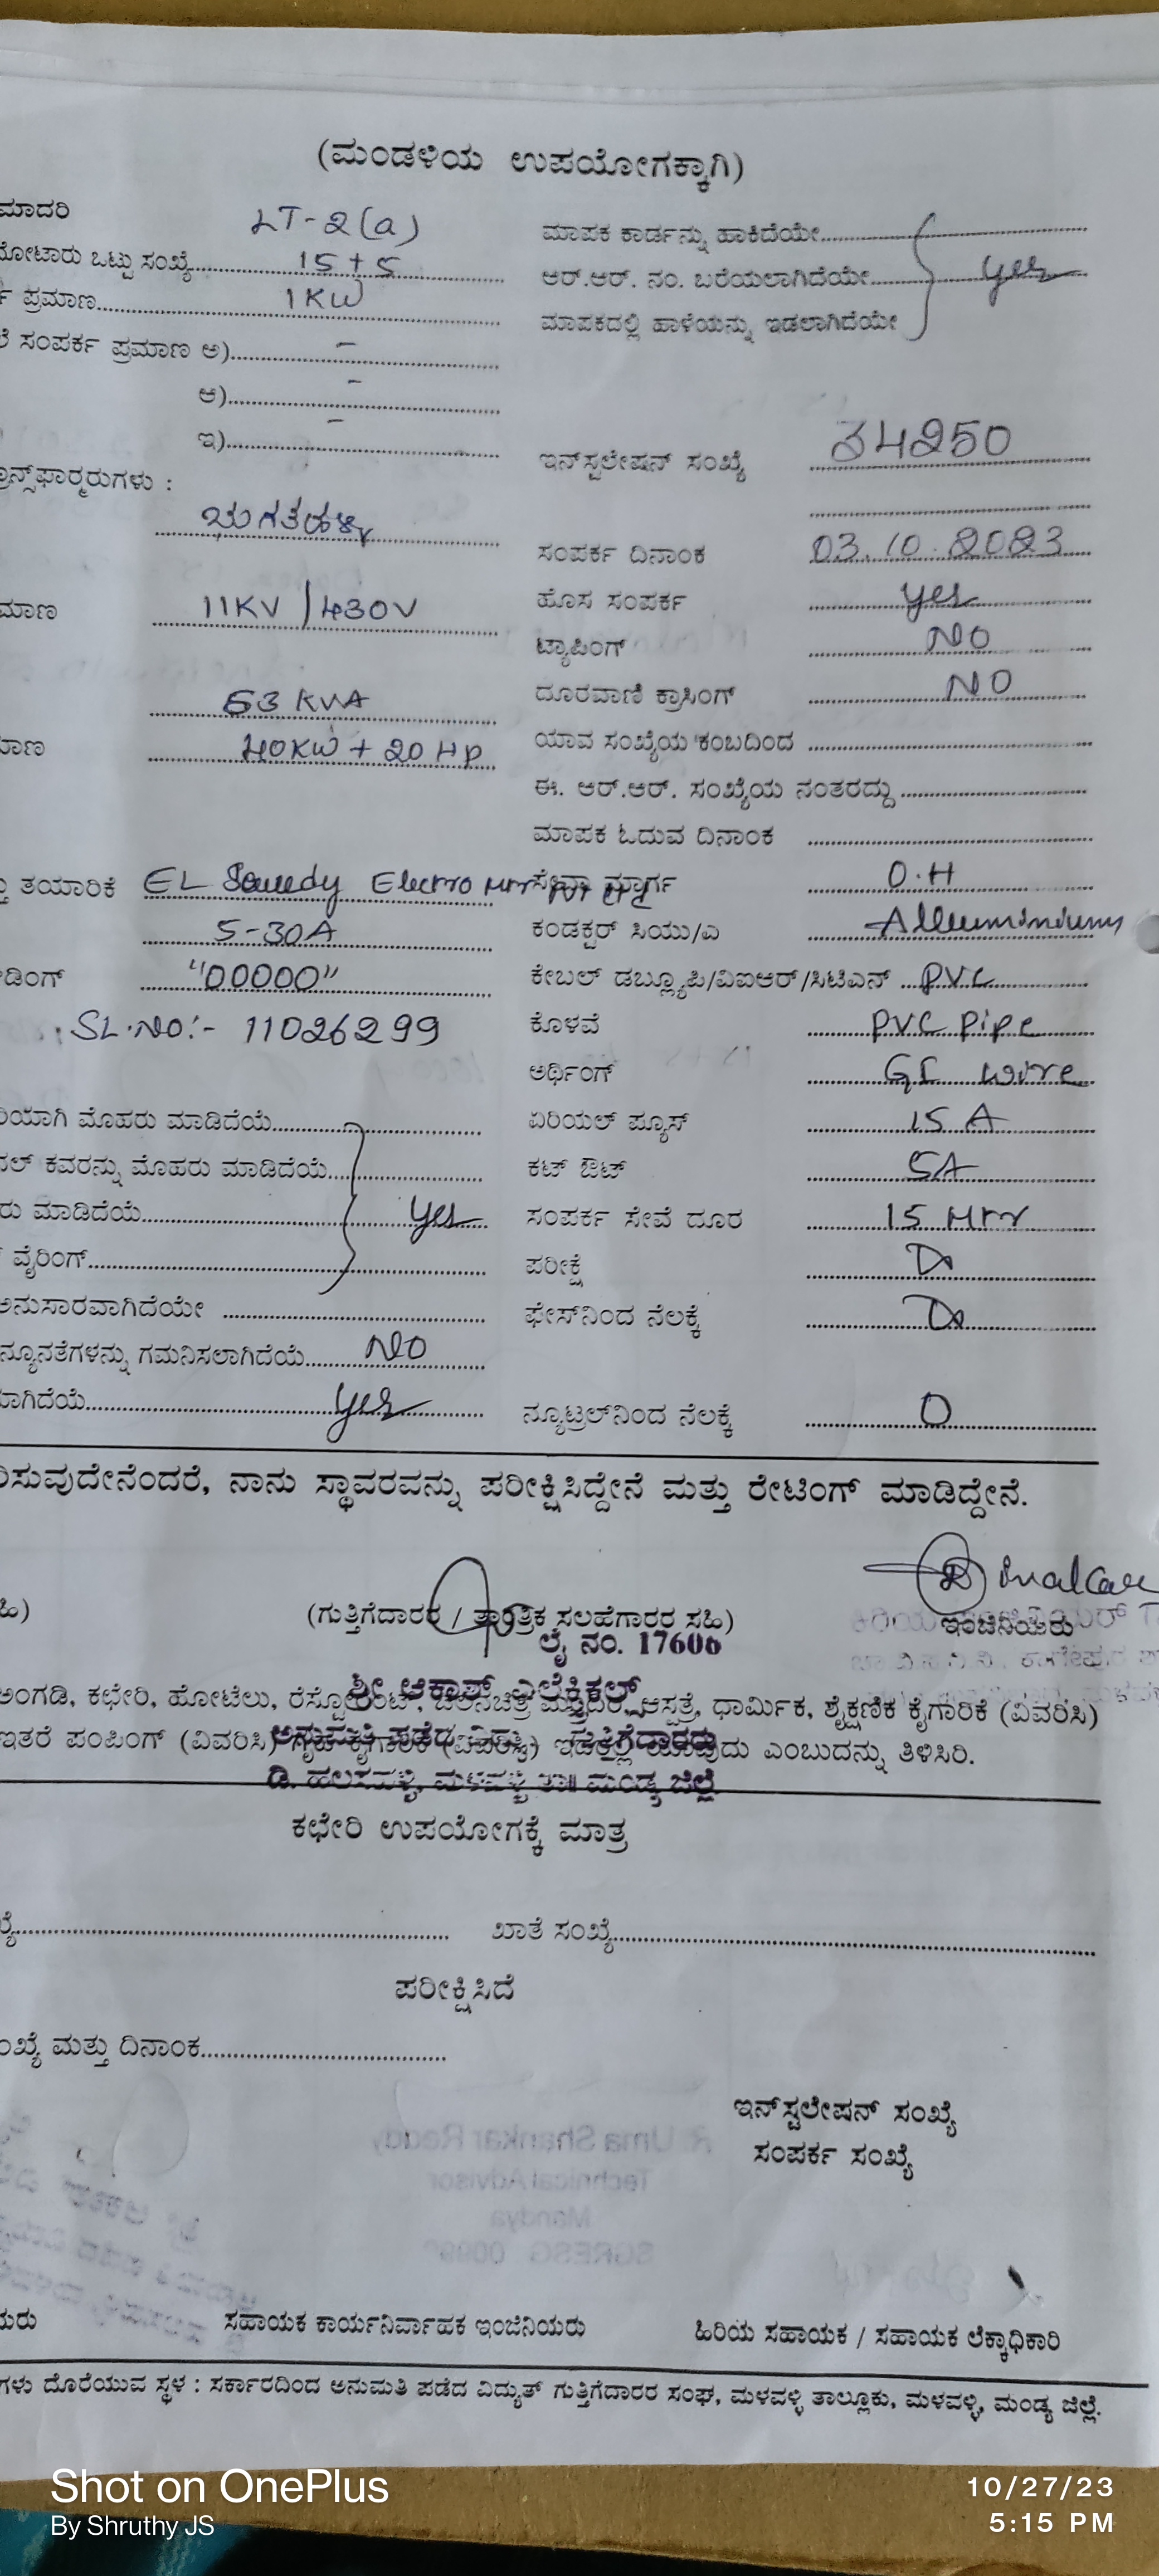 (ಮಂಡಳಿಯ ಉಪಯೋಗಕ್ಕಾಗಿ)
ಮಾದರಿ LT-2(a)
ಮೋಟಾರು ಒಟ್ಟು ಸಂಖ್ಯೆ 15+5
ಪ್ರಮಾಣ 1KW
ಸಂಪರ್ಕ ಪ್ರಮಾಣ ಅ) -
ಆ) -
ಇ) -
ಮಾಪಕ ಕಾರ್ಡನ್ನು ಹಾಕಿದೆಯೇ
ಆರ್.ಆರ್. ನಂ. ಬರೆಯಲಾಗಿದೆಯೇ yes
ಮಾಪಕದಲ್ಲಿ ಹಾಳೆಯನ್ನು ಇಡಲಾಗಿದೆಯೇ
ಇನ್‌ಸ್ಟಲೇಷನ್ ಸಂಖ್ಯೆ 34250
ಸಂಪರ್ಕ ದಿನಾಂಕ 03.10.2023
ಹೊಸ ಸಂಪರ್ಕ yes
ಟ್ಯಾಪಿಂಗ್ NO
ದೂರವಾಣಿ ಕ್ರಾಸಿಂಗ್ NO
ಯಾವ ಸಂಖ್ಯೆಯ ಕಂಬದಿಂದ
ಈ. ಆರ್.ಆರ್. ಸಂಖ್ಯೆಯ ನಂತರದ್ದು
ಮಾಪಕ ಓದುವ ದಿನಾಂಕ
11KV / 430V
63 KVA
40KW + 20 HP
ತಯಾರಿಕೆ EL Sewedy Electro
5-30A
"00000"
SL.NO:- 11026299
ಸೇವಾ ಮಾರ್ಗ O.H
ಕಂಡಕ್ಟರ್ ಸಿಯು/ಎ
ಕೇಬಲ್ ಡಬ್ಲ್ಯೂಪಿ/ವಿಐಆರ್/ಸಿಟಿಎಸ್ PVC
ಕೊಳವೆ PVC Pipe
ಅರ್ಥಿಂಗ್ GI wire
ಏರಿಯಲ್ ಫ್ಯೂಸ್ 15 A
ಕಟ್ ಔಟ್ 5A
ಸಂಪರ್ಕ ಸೇವೆ ದೂರ 15 Mtr
ಪರೀಕ್ಷೆ
ಫೇಸ್‌ನಿಂದ ನೆಲಕ್ಕೆ
ನ್ಯೂಟ್ರಲ್‌ನಿಂದ ನೆಲಕ್ಕೆ 0
ಮೊಹರು ಮಾಡಿದೆಯೆ
ಕವರನ್ನು ಮೊಹರು ಮಾಡಿದೆಯೆ
ಮಾಡಿದೆಯೆ yes
ವೈರಿಂಗ್
ಅನುಸಾರವಾಗಿದೆಯೇ
ನ್ಯೂನತೆಗಳನ್ನು ಗಮನಿಸಲಾಗಿದೆಯೆ NO
yes
ನಾನು ಸ್ಥಾವರವನ್ನು ಪರೀಕ್ಷಿಸಿದ್ದೇನೆ ಮತ್ತು ರೇಟಿಂಗ್ ಮಾಡಿದ್ದೇನೆ.
(ಗುತ್ತಿಗೆದಾರರ / ತಾಂತ್ರಿಕ ಸಲಹೆಗಾರರ ಸಹಿ) ಇಂಜಿನಿಯರು
ಲೈ ನಂ. 17606
ಶ್ರೀ ಆಕಾಶ್ ಎಲೆಕ್ಟ್ರಿಕಲ್ಸ್
ಅಂಗಡಿ, ಕಛೇರಿ, ಹೋಟೆಲು, ಆಸ್ಪತ್ರೆ, ಧಾರ್ಮಿಕ, ಶೈಕ್ಷಣಿಕ ಕೈಗಾರಿಕೆ (ವಿವರಿಸಿ)
ಇತರೆ ಪಂಪಿಂಗ್ (ವಿವರಿಸಿ) ಎಂಬುದನ್ನು ತಿಳಿಸಿರಿ.
ಡಿ. ಹಲಸಹಳ್ಳಿ, ಮಳವಳ್ಳಿ ತಾ॥ ಮಂಡ್ಯ ಜಿಲ್ಲೆ
ಕಛೇರಿ ಉಪಯೋಗಕ್ಕೆ ಮಾತ್ರ
ಖಾತೆ ಸಂಖ್ಯೆ
ಪರೀಕ್ಷಿಸಿದೆ
ಮತ್ತು ದಿನಾಂಕ
ಇನ್‌ಸ್ಟಲೇಷನ್ ಸಂಖ್ಯೆ
ಸಂಪರ್ಕ ಸಂಖ್ಯೆ
ಸಹಾಯಕ ಕಾರ್ಯನಿರ್ವಾಹಕ ಇಂಜಿನಿಯರು ಹಿರಿಯ ಸಹಾಯಕ / ಸಹಾಯಕ ಲೆಕ್ಕಾಧಿಕಾರಿ
ದೊರೆಯುವ ಸ್ಥಳ : ಸರ್ಕಾರದಿಂದ ಅನುಮತಿ ಪಡೆದ ವಿದ್ಯುತ್ ಗುತ್ತಿಗೆದಾರರ ಸಂಘ, ಮಳವಳ್ಳಿ ತಾಲ್ಲೂಕು, ಮಳವಳ್ಳಿ, ಮಂಡ್ಯ ಜಿಲ್ಲೆ.
Shot on OnePlus
By Shruthy JS
10/27/23
5:15 PM